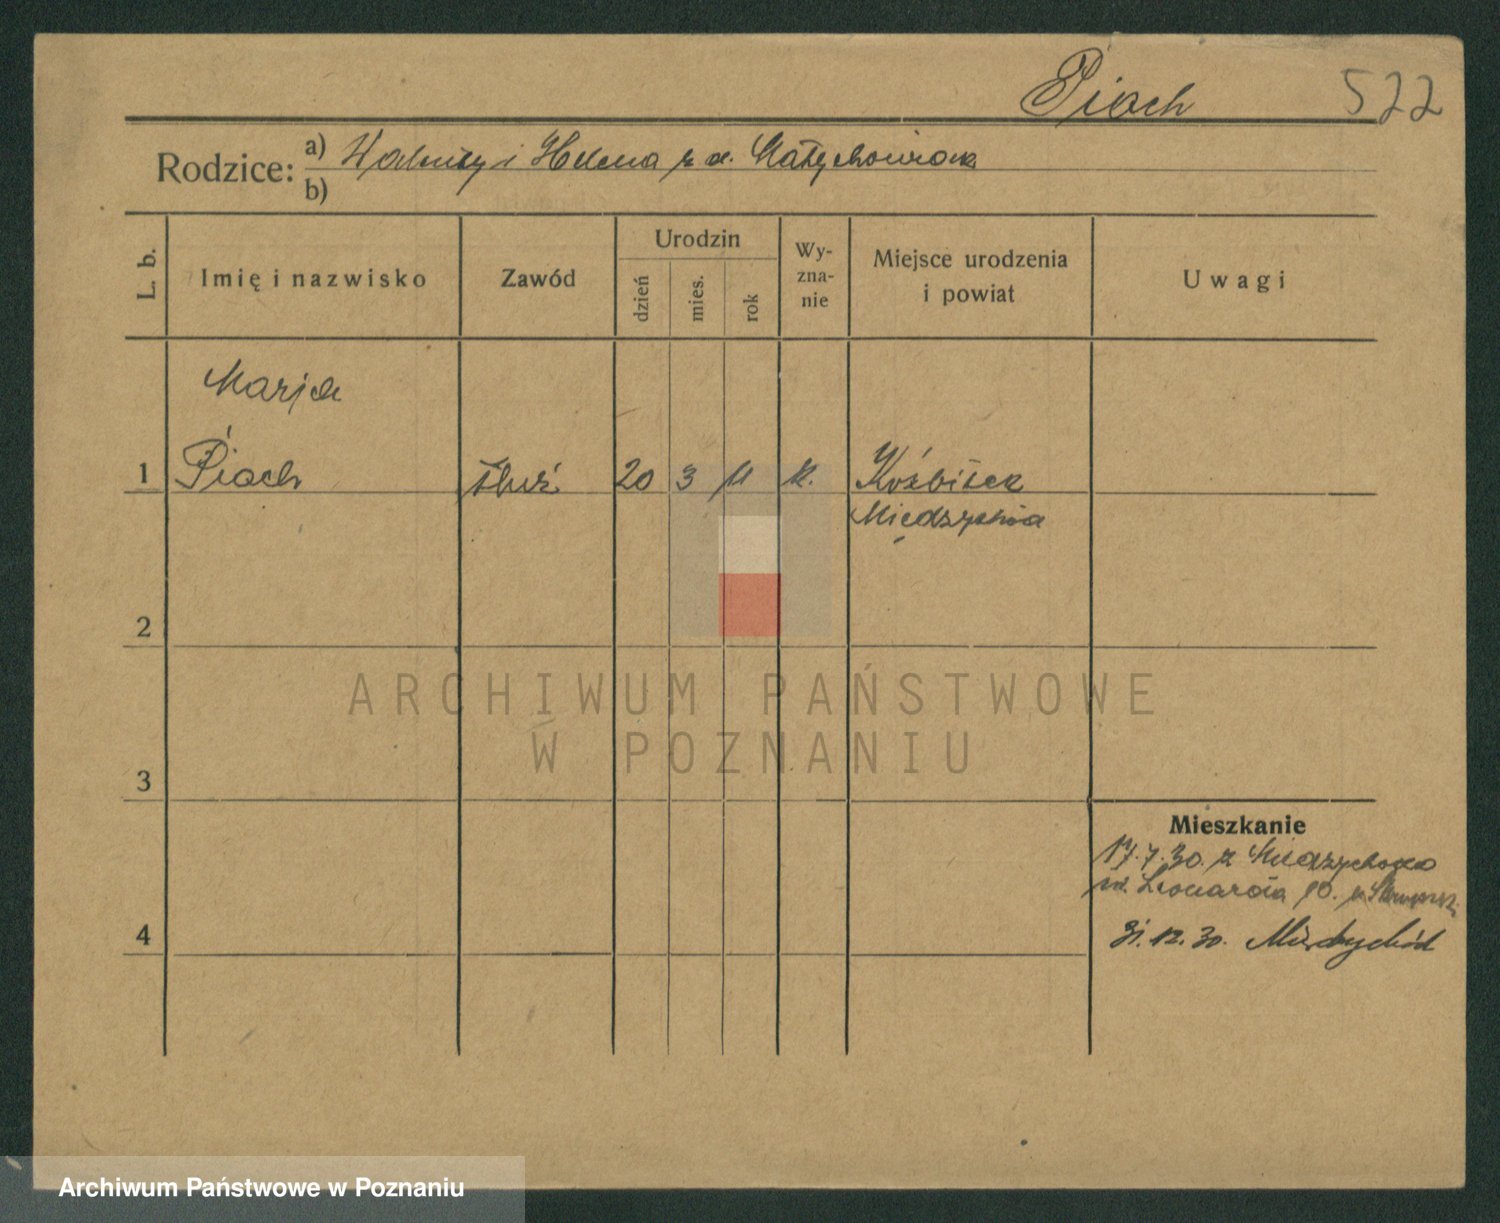 Piach 522
Rodzice: a) Walenty i Helena z d. Matychowiak
b)
L. b. Imię i nazwisko Zawód Urodzin dzień mies. rok Wy-zna-nie Miejsce urodzenia i powiat Uwagi
Marja
1 Piach służ 20 3 11 k. Koźbitek
Międzychód
2
ARCHIWUM PAŃSTWOWE
W POZNANIU
3
Mieszkanie
17.7.30. z Międzychodu
św. Leonarda 10.
4 31.12.30. Międzychód
Archiwum Państwowe w Poznaniu